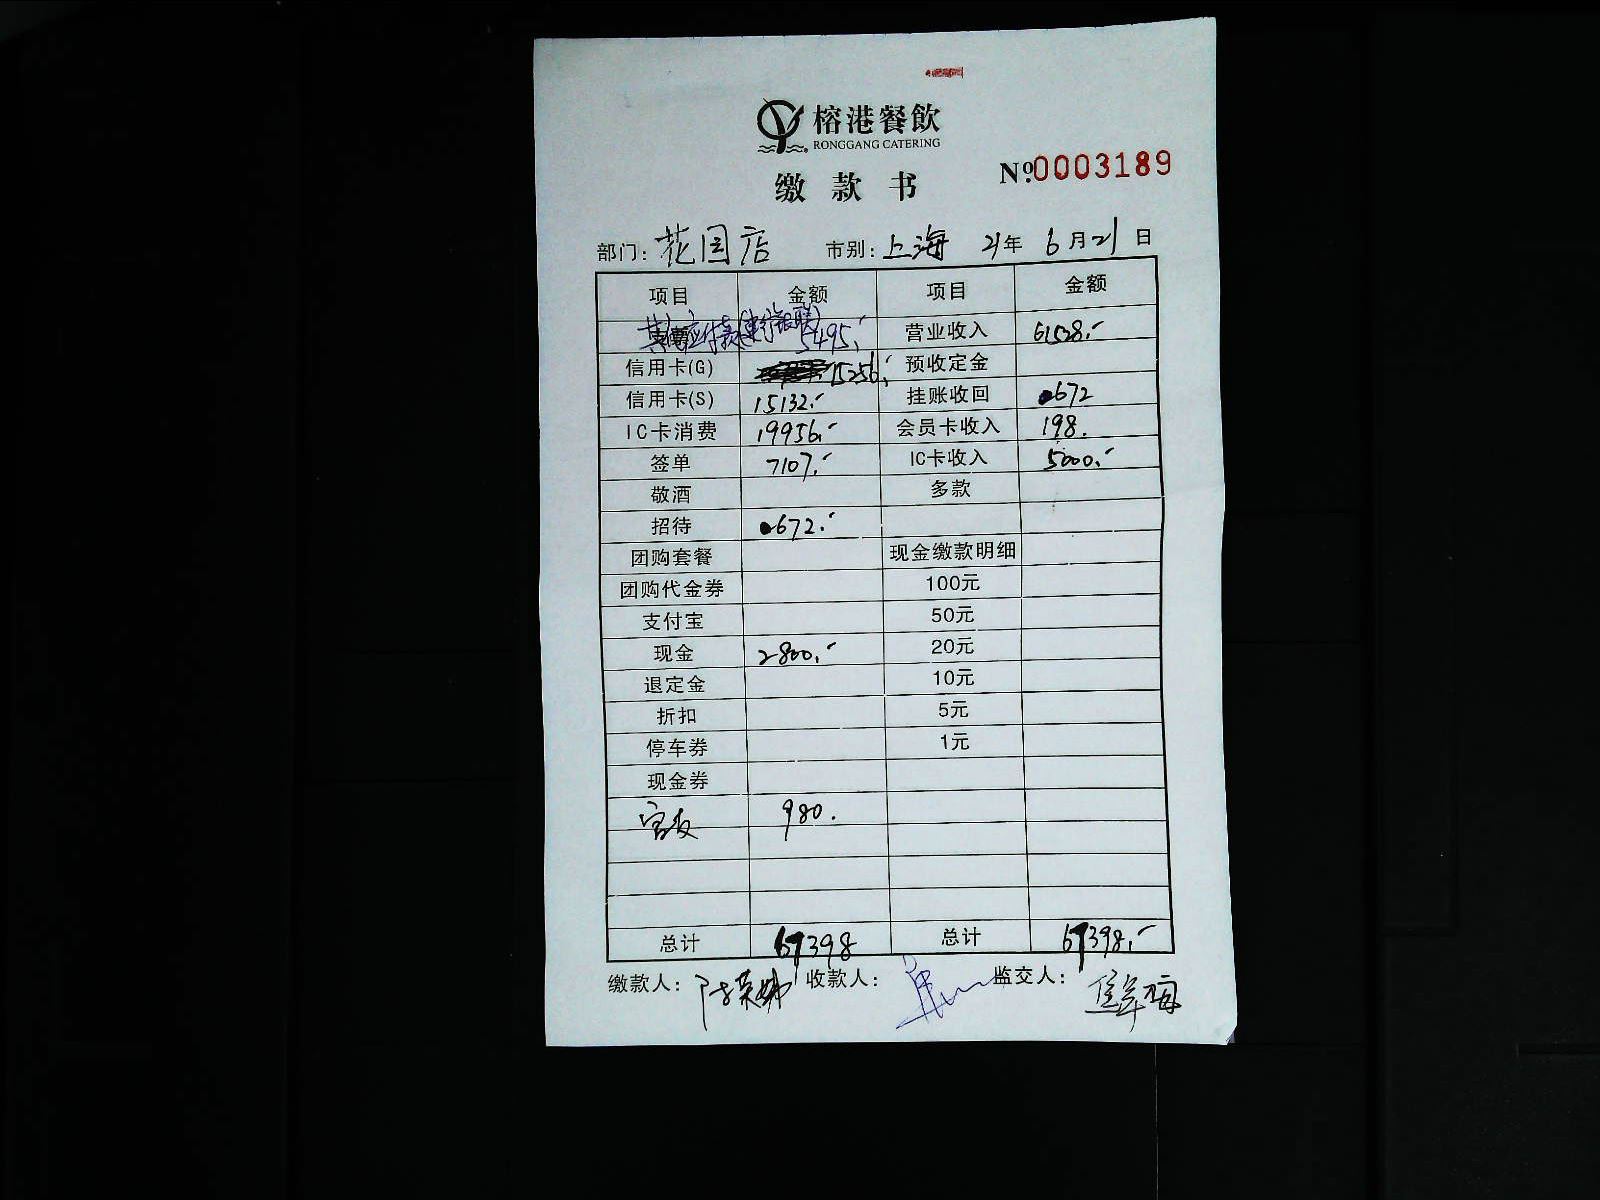 榕港餐飲
RONGGANG CATERING
缴款书
№.0003189
部门: 花园店 市别: 上海 21年 6月21日
项目 金额 项目 金额
其他应付款(建行银联) 5495.- 营业收入 61528.-
信用卡(G) 15256.- 预收定金
信用卡(S) 15132.- 挂账收回 672
IC卡消费 19956.- 会员卡收入 198.
签单 7107.- IC卡收入 5000.-
敬酒 多款
招待 672.-
团购套餐 现金缴款明细
团购代金券 100元
支付宝 50元
现金 2800.- 20元
退定金 10元
折扣 5元
停车券 1元
现金券
980.
总计 67398 总计 67398.-
缴款人: 收款人: 监交人: